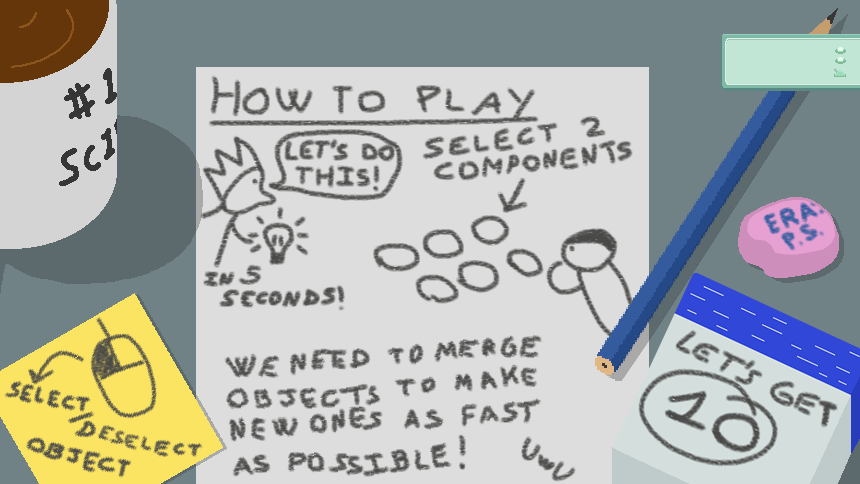 #1
SCI
HOW TO PLAY
LET'S DO
THIS!
SELECT 2
COMPONENTS
IN 5
SECONDS!
WE NEED TO MERGE
OBJECTS TO MAKE
NEW ONES AS FAST
AS POSSIBLE!
UwU
SELECT
/DESELECT
OBJECT
ERA.
P.S.
LET'S GET
10